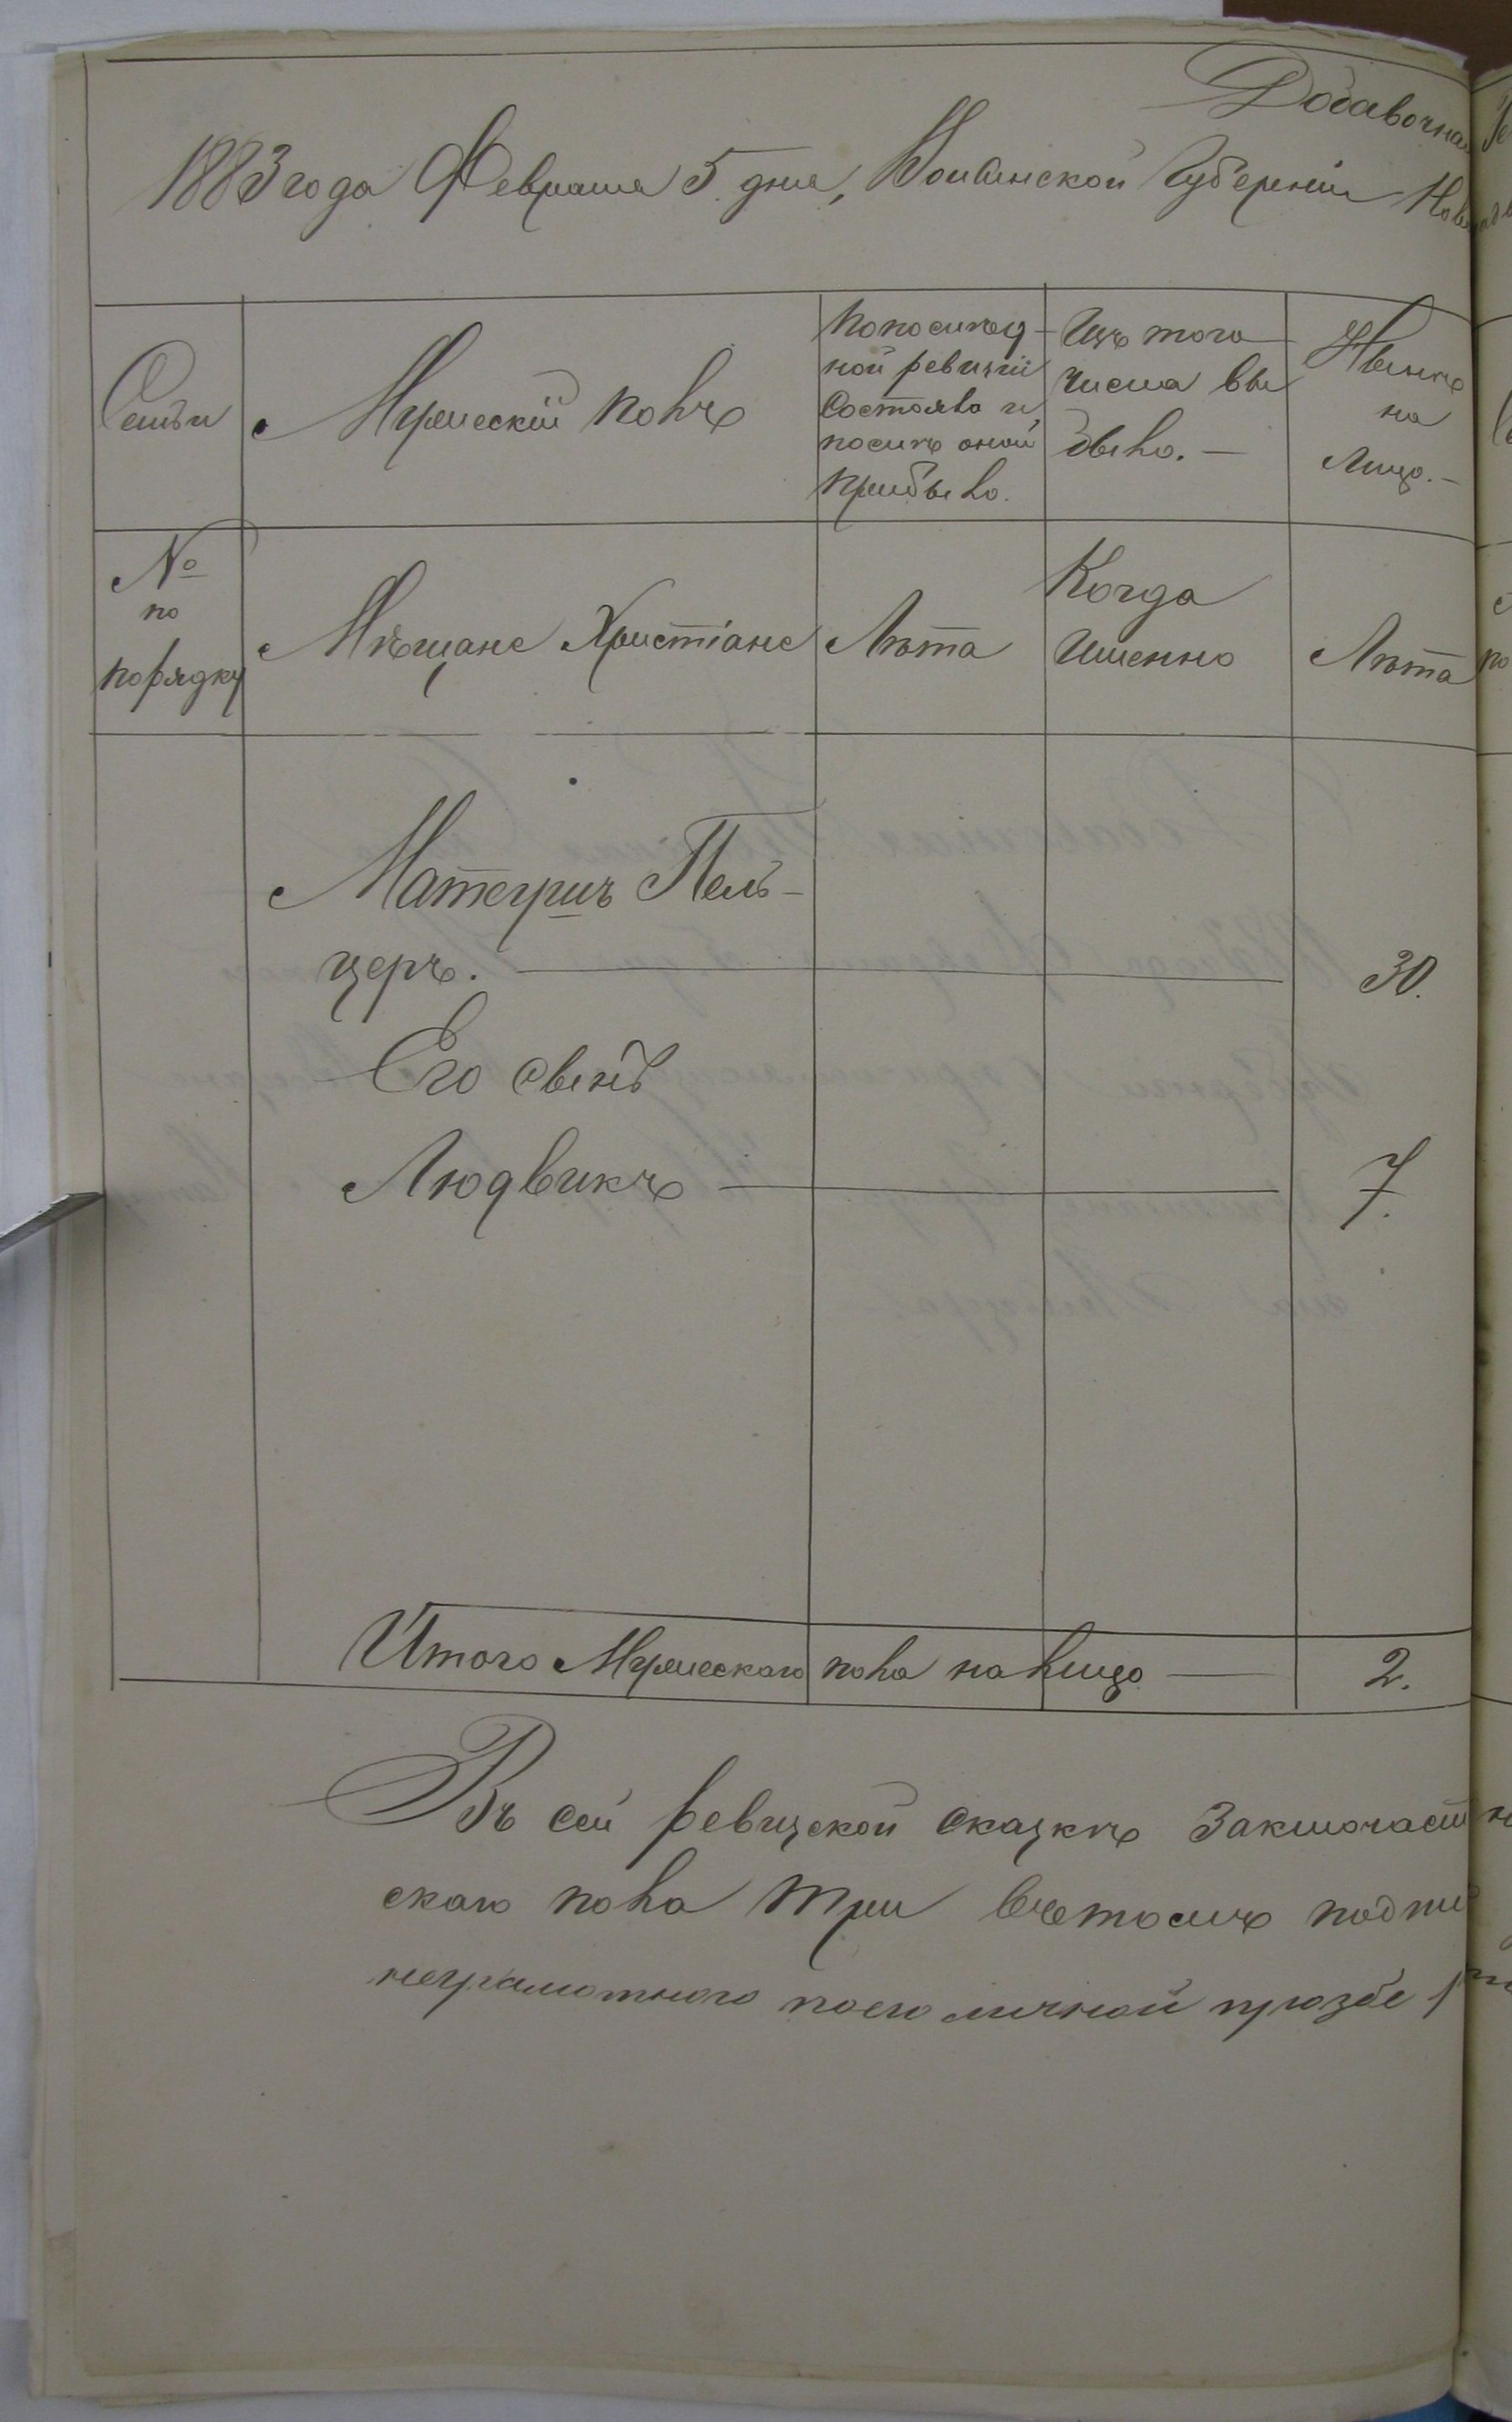 Добавочная
1883 года Февраля 5 дня, Волынской Губерніи Нов
Семьи
Мужескій полъ
По послѣд-
ной ревизіи
состояло и
послѣ оной
прибыло.
Изъ того
числа вы
было. —
Нынѣ
на
лицо. —
№
по
порядку
Мѣщане Христіане
Лѣта
Когда
именно
Лѣта
Пель-
церъ. — 30.
Его сынъ
Людвикъ — 7.
Итого Мужескаго пола на лицо — 2.
Въ сей ревизской сказкѣ заключает
скаго пола три
неграмотного по его личной прозбе